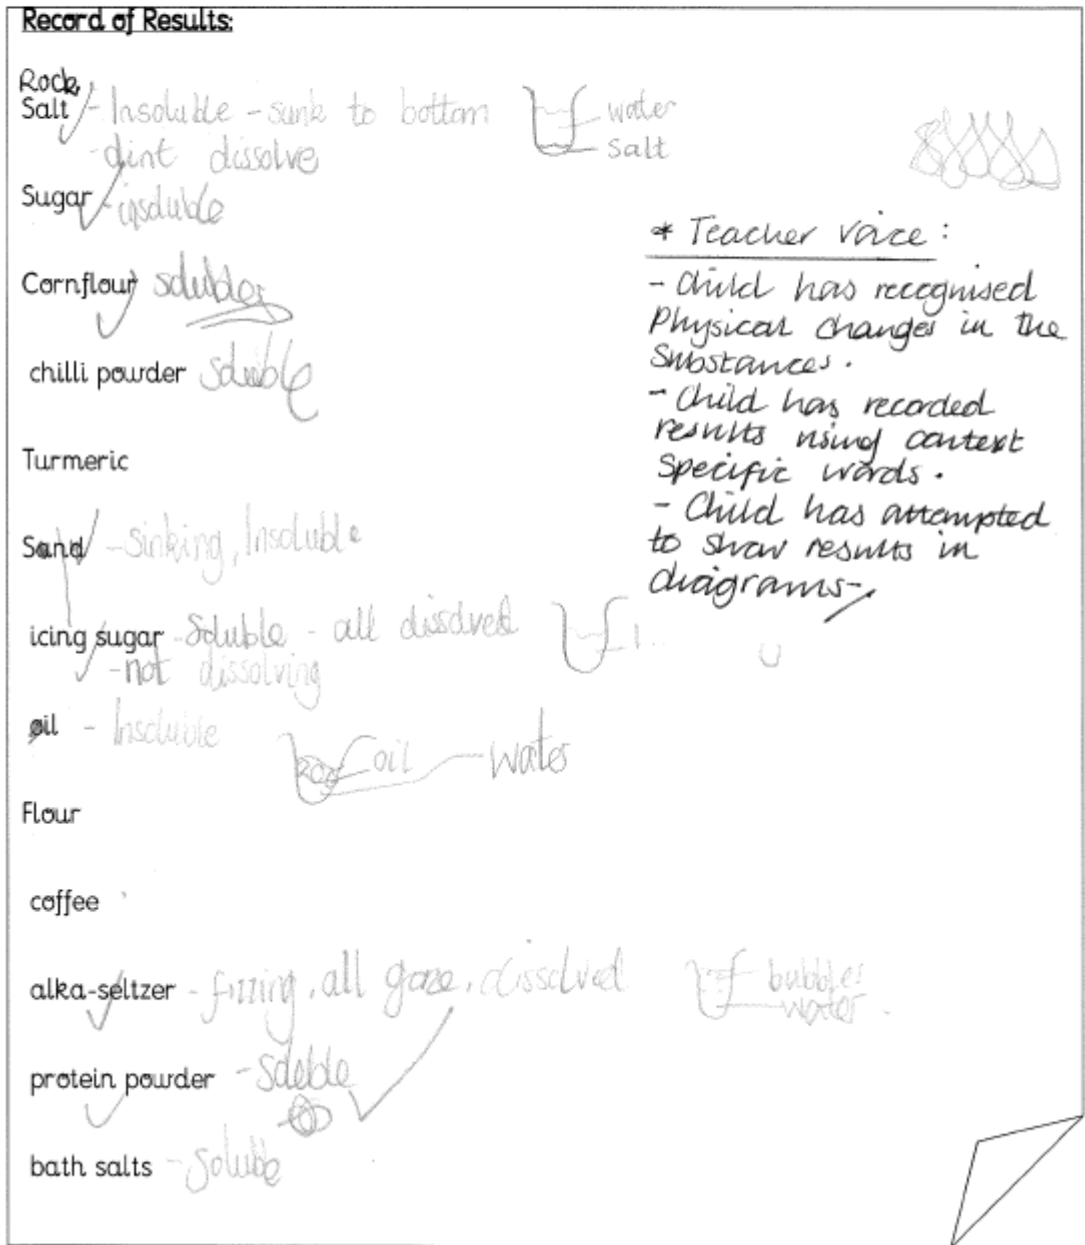 Record of Results:
Rock
Salt - Insoluble - sunk to bottom
water
salt
- dint dissolve
Sugar - insoluble
Cornflour soluble
chilli powder soluble
Turmeric
Sand - sinking, Insoluble
icing sugar - Soluble - all disolved
- not dissolving
oil - Insoluble
oil
water
Flour
coffee
alka-seltzer - fizzing, all gone, dissolved
bubbles
water
protein powder - soluble
bath salts - soluble
* Teacher voice:
- Child has recognised
Physical changes in the
Substances.
- Child has recorded
results using context
specific words.
- Child has attempted
to show results in
diagrams-